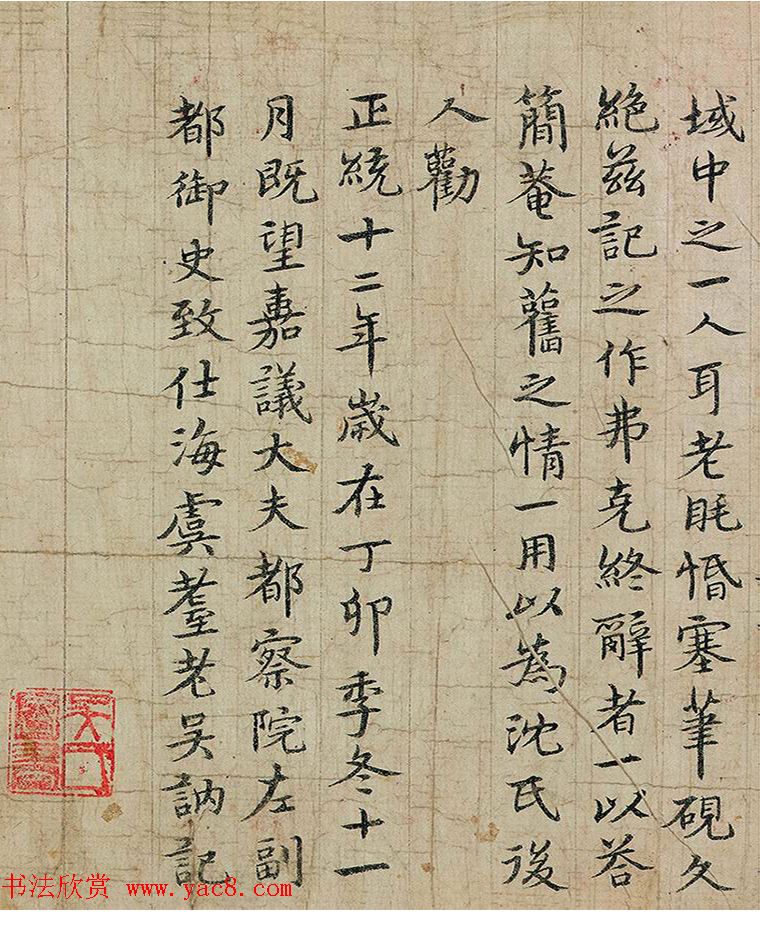 域中之一人耳老眊惛塞筆硯久
絶茲記之作弗克終辭者一以荅
簡菴知舊之情一用以為沈氏後
人勸
正統十二年歲在丁卯季冬十一
月既望嘉議大夫都察院左副
都御史致仕海虞耋老吴訥記
书法欣赏 www.yac8.com